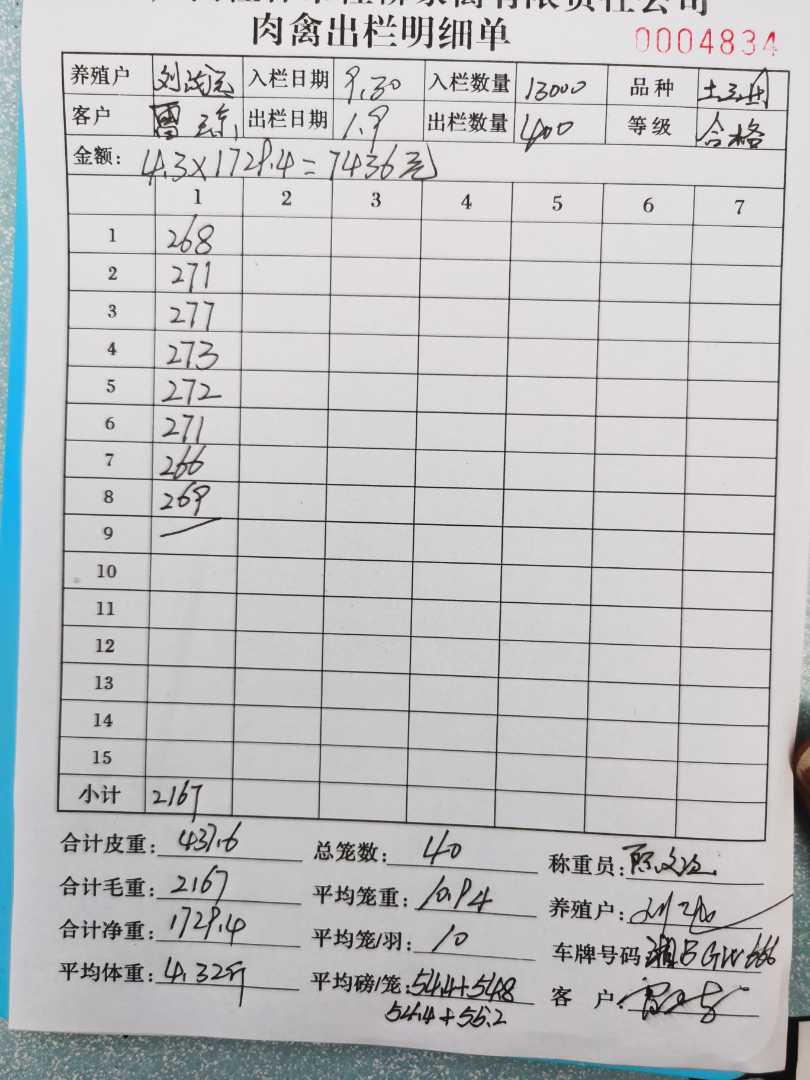 有限责任公司
肉禽出栏明细单 0004834
养殖户 刘 入栏日期 9.30 入栏数量 13000 品种 土
客户 曹 出栏日期 1.9 出栏数量 400 等级 合格
金额: 4.3×1729.4=7436元
1 2 3 4 5 6 7
1 268
2 271
3 277
4 273
5 272
6 271
7 266
8 269
9
10
11
12
13
14
15
小计 2167
合计皮重: 437.6 总笼数: 40 称重员:
合计毛重: 2167 平均笼重: 10.94 养殖户:
合计净重: 1729.4 平均笼/羽: 10 车牌号码 湘B GW666
平均体重: 4.32斤 平均磅/笼: 54.4+54.8 客户:
54.4+55.2